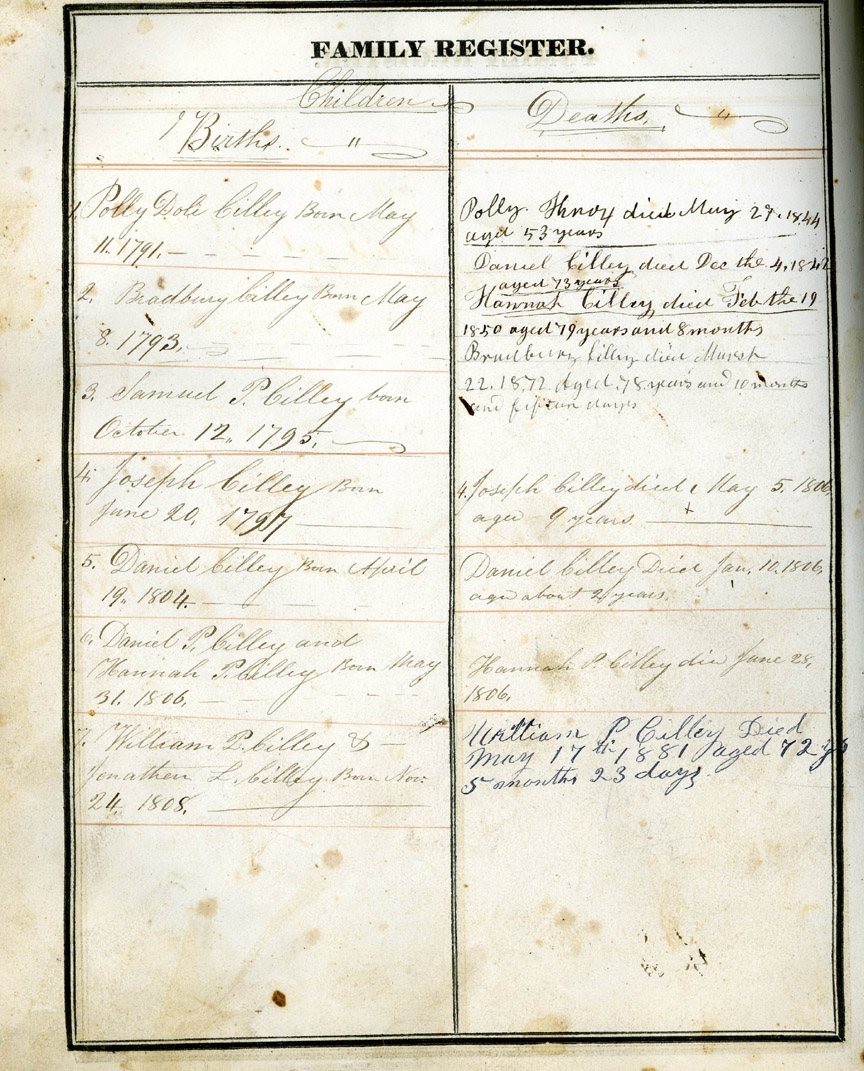 FAMILY REGISTER.
Children
Births. "
1. Polly Doli Cilley Born May
11. 1791.
2. Bradbury Cilley Born May
8. 1793.
3. Samuel P. Cilley born
October 12, 1795.
4. Joseph Cilley Born
June 20, 1797
5. Daniel Cilley Born April
19. 1804.
6. Daniel P. Cilley and
Hannah P. Cilley Born May
31. 1806.
7. William P. Cilley &
Jonathan L. Cilley Born Nov.
24. 1808.
Deaths. "
Polly died May 29. 1844
aged 53 years
Daniel Cilley died Dec the 4, 1842
aged 73 years
Hannah Cilley died Feb the 19
1850 aged 79 years and 8 months
Bradbury Cilley died March
22, 1872 Aged 78 years and 10 months
and fifteen days
4. Joseph Cilley died May 5, 1806
aged 9 years
Daniel Cilley Died Jan. 10. 1806,
age about 2 years.
Hannah P. Cilley die June 28,
1806.
William P Cilley Died
May 17th 1881 aged 72 ys
5 months 23 days.